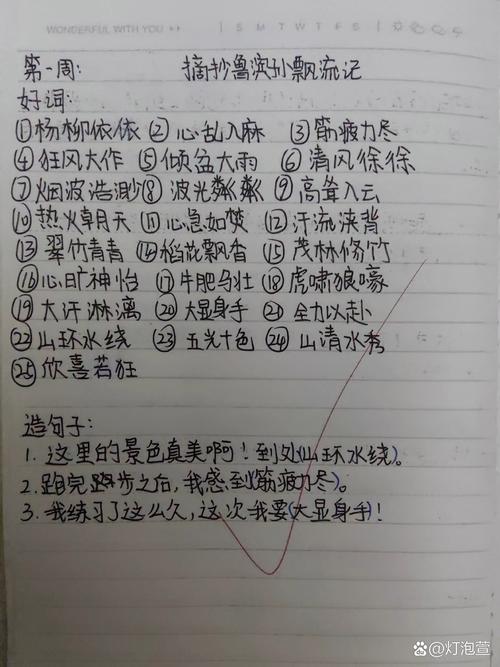 WONDERFUL WITH YOU ▸▸ | S M T W T F S |
第一周: 摘抄鲁滨孙飘流记
好词:
①杨柳依依 ② 心乱入麻 ③ 筋疲力尽
④ 狂风大作 ⑤ 倾盆大雨 ⑥ 清风徐徐
⑦烟波浩渺 ⑧ 波光粼粼 ⑨ 高耸入云
⑩ 热火朝天 ⑪ 心急如焚 ⑫ 汗流浃背
⑬ 翠竹青青 ⑭ 稻花飘香 ⑮ 茂林修竹
⑯心旷神怡 ⑰ 牛肥马壮 ⑱ 虎啸狼嚎
⑲ 大汗淋漓 ⑳ 大显身手 ㉑ 全力以赴
㉒山环水绕 ㉓ 五光十色 ㉔ 山清水秀
㉕欣喜若狂
造句子:
1. 这里的景色真美啊!到处(山环水绕)。
2.跑完跑步之后,我感到(筋疲力尽)。
3.我练习了这么久,这次我要(大显身手)!
@灯泡萱